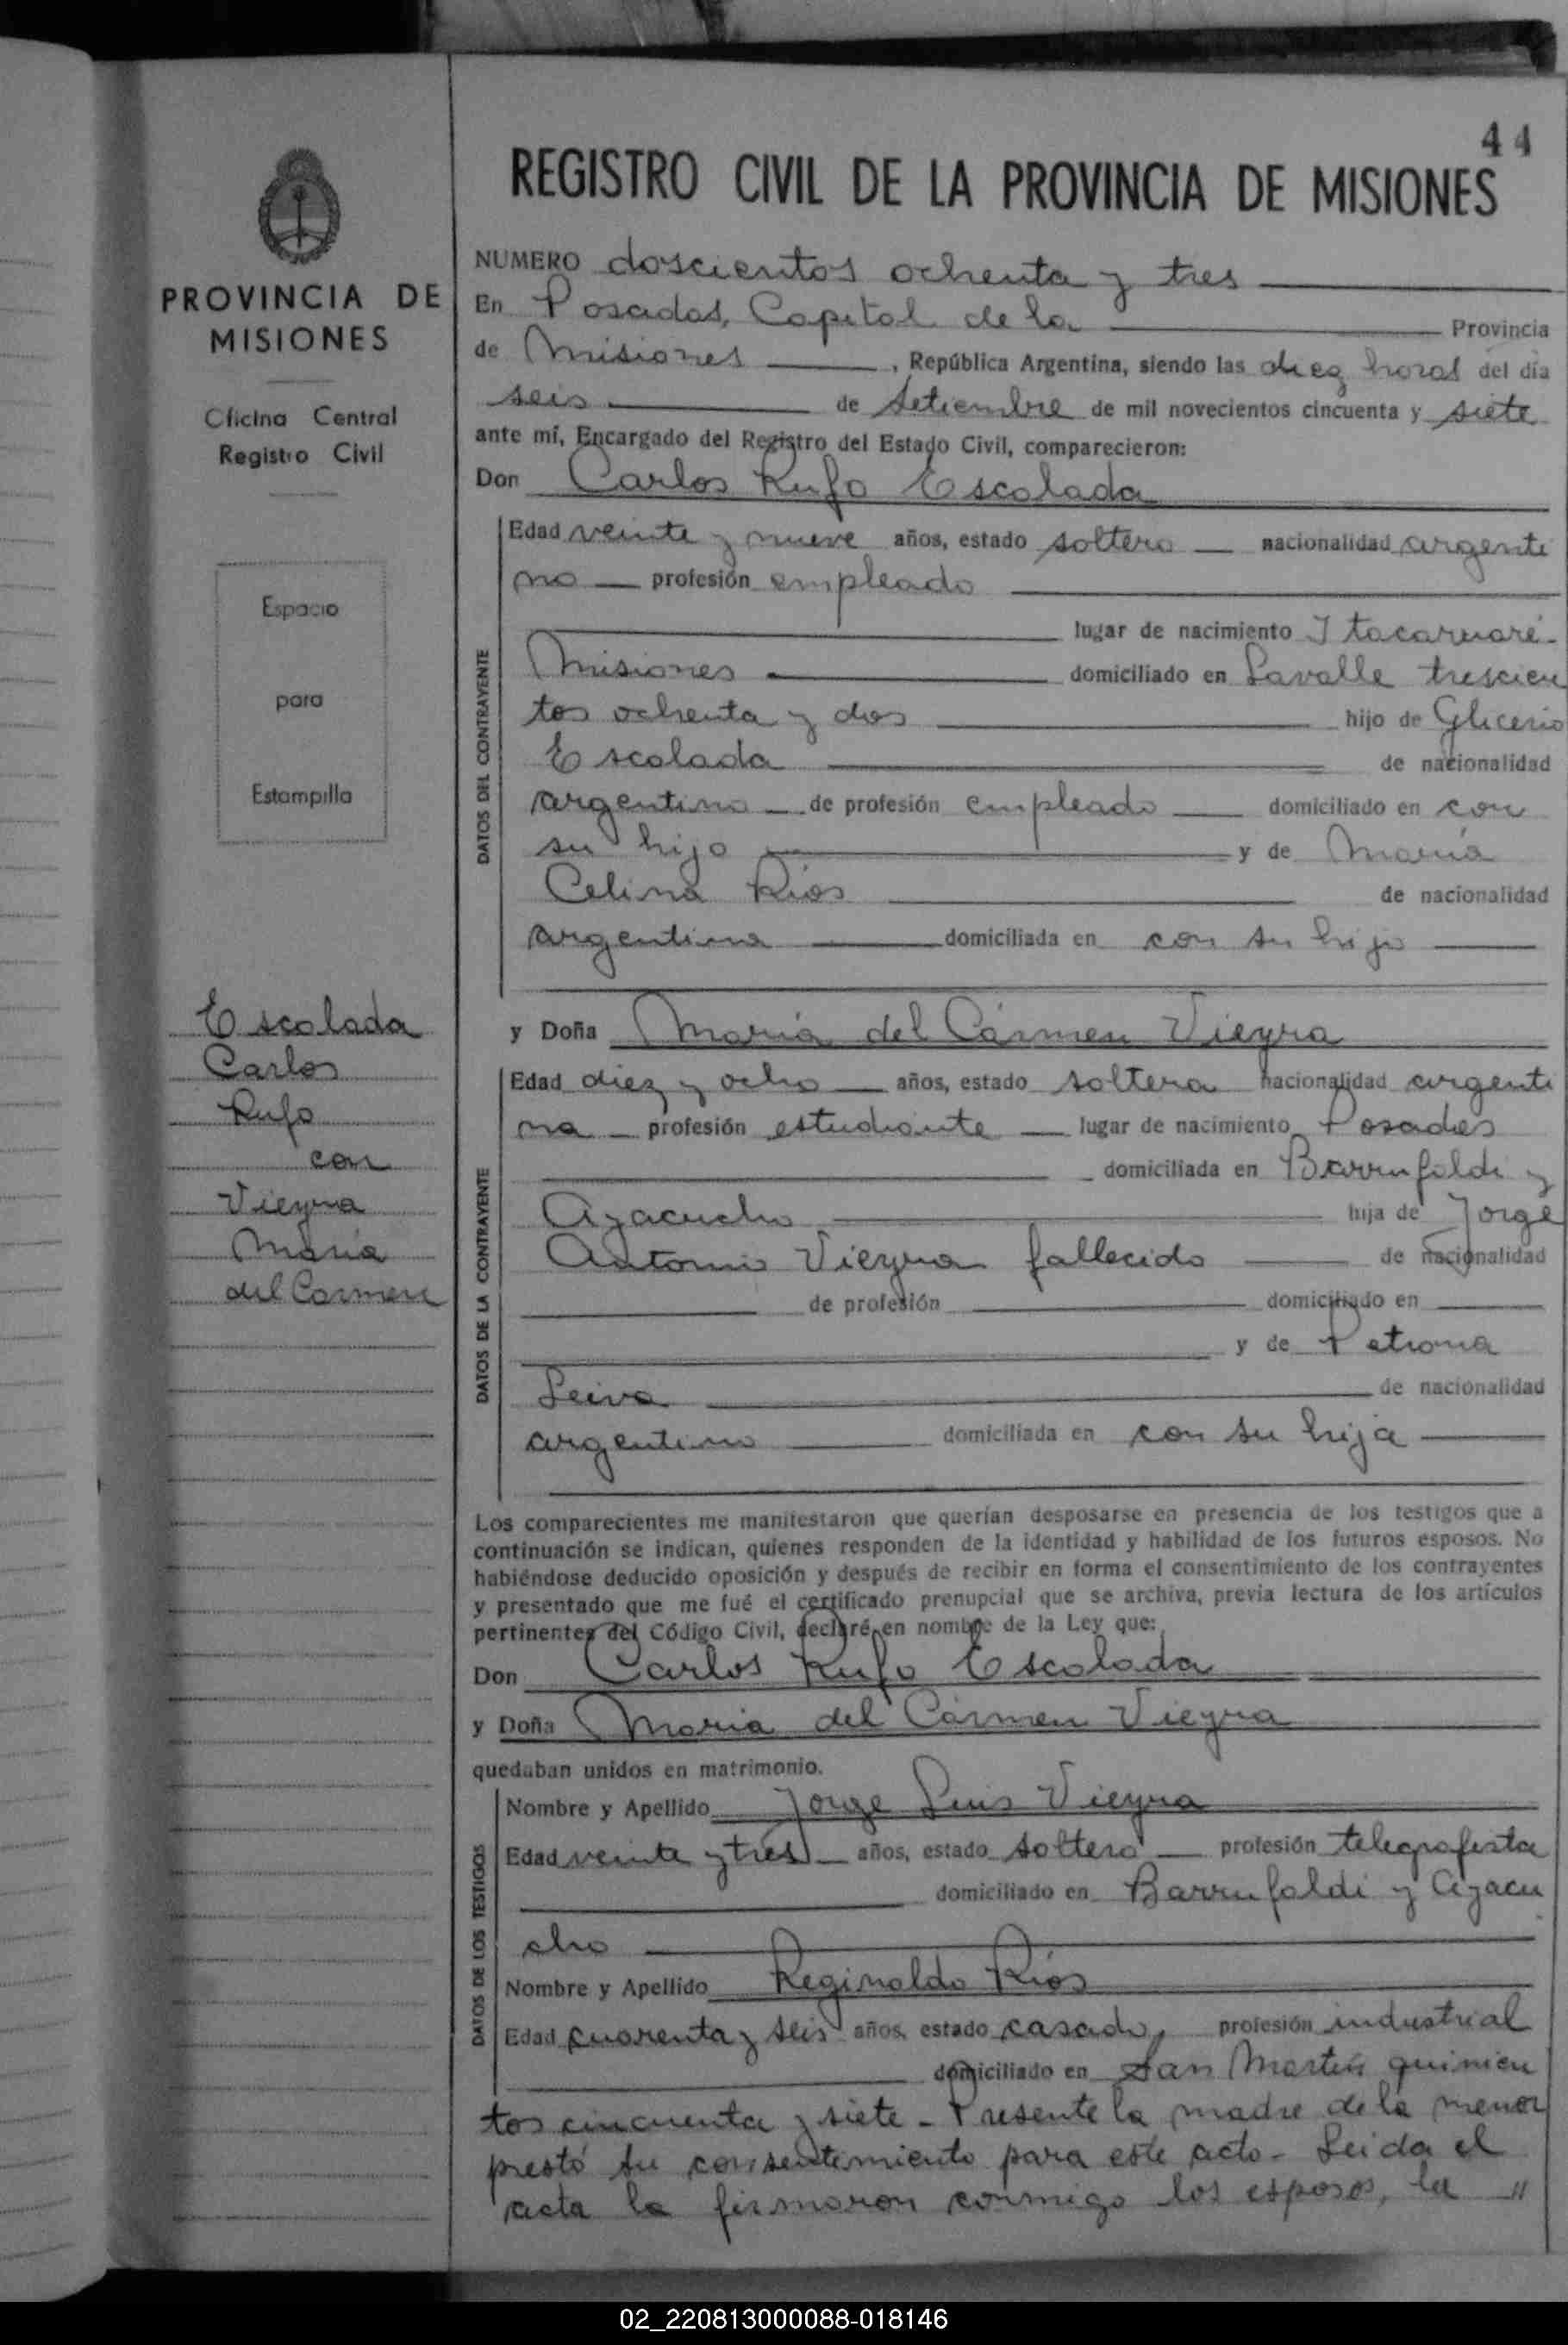 44
REGISTRO CIVIL DE LA PROVINCIA DE MISIONES
PROVINCIA DE
MISIONES
Oficina Central
Registro Civil
Espacio
para
Estampilla
Escalada
Carlos
Rufo
con
Vieyra
María
del Carmen
NUMERO doscientos ochenta y tres
En Posadas, Capital de la Provincia
de Misiones, República Argentina, siendo las diez horas del día
seis de Setiembre de mil novecientos cincuenta y siete
ante mí, Encargado del Registro del Estado Civil, comparecieron:
Don Carlos Rufo Escalada
DATOS DEL CONTRAYENTE
Edad veinte y nueve años, estado soltero nacionalidad argenti
no profesión empleado
lugar de nacimiento Itacaruaré-
Misiones domiciliado en Lavalle trescien
tos ochenta y dos hijo de Glicerio
Escalada de nacionalidad
argentina de profesión empleado domiciliado en con
su hijo y de María
Celina Ríos de nacionalidad
argentina domiciliada en con su hijo
y Doña María del Cármen Vieyra
DATOS DE LA CONTRAYENTE
Edad diez y ocho años, estado soltera nacionalidad argenti
na profesión estudiante lugar de nacimiento Posadas
domiciliada en Barrufaldi y
Ayacucho hija de Jorge
Antonio Vieyra fallecido de nacionalidad
de profesión domiciliado en
y de Petrona
Leiva de nacionalidad
argentina domiciliada en con su hija
Los comparecientes me manifestaron que querían desposarse en presencia de los testigos que a
continuación se indican, quienes responden de la identidad y habilidad de los futuros esposos. No
habiéndose deducido oposición y después de recibir en forma el consentimiento de los contrayentes
y presentado que me fué el certificado prenupcial que se archiva, previa lectura de los artículos
pertinentes del Código Civil, declaré en nombre de la Ley que:
Don Carlos Rufo Escalada
y Doña María del Cármen Vieyra
quedaban unidos en matrimonio.
DATOS DE LOS TESTIGOS
Nombre y Apellido Jorge Luis Vieyra
Edad veinte y tres años, estado soltero profesión telegrafista
domiciliado en Barrufaldi y Ayacu
cho
Nombre y Apellido Reginaldo Ríos
Edad cuarenta y seis años, estado casado, profesión industrial
domiciliado en San Martín quinien
tos cincuenta y siete - Presente la madre de la menor
prestó su consentimiento para este acto - Leida el
acta la firmaron conmigo los esposos, la "
02_220813000088-018146